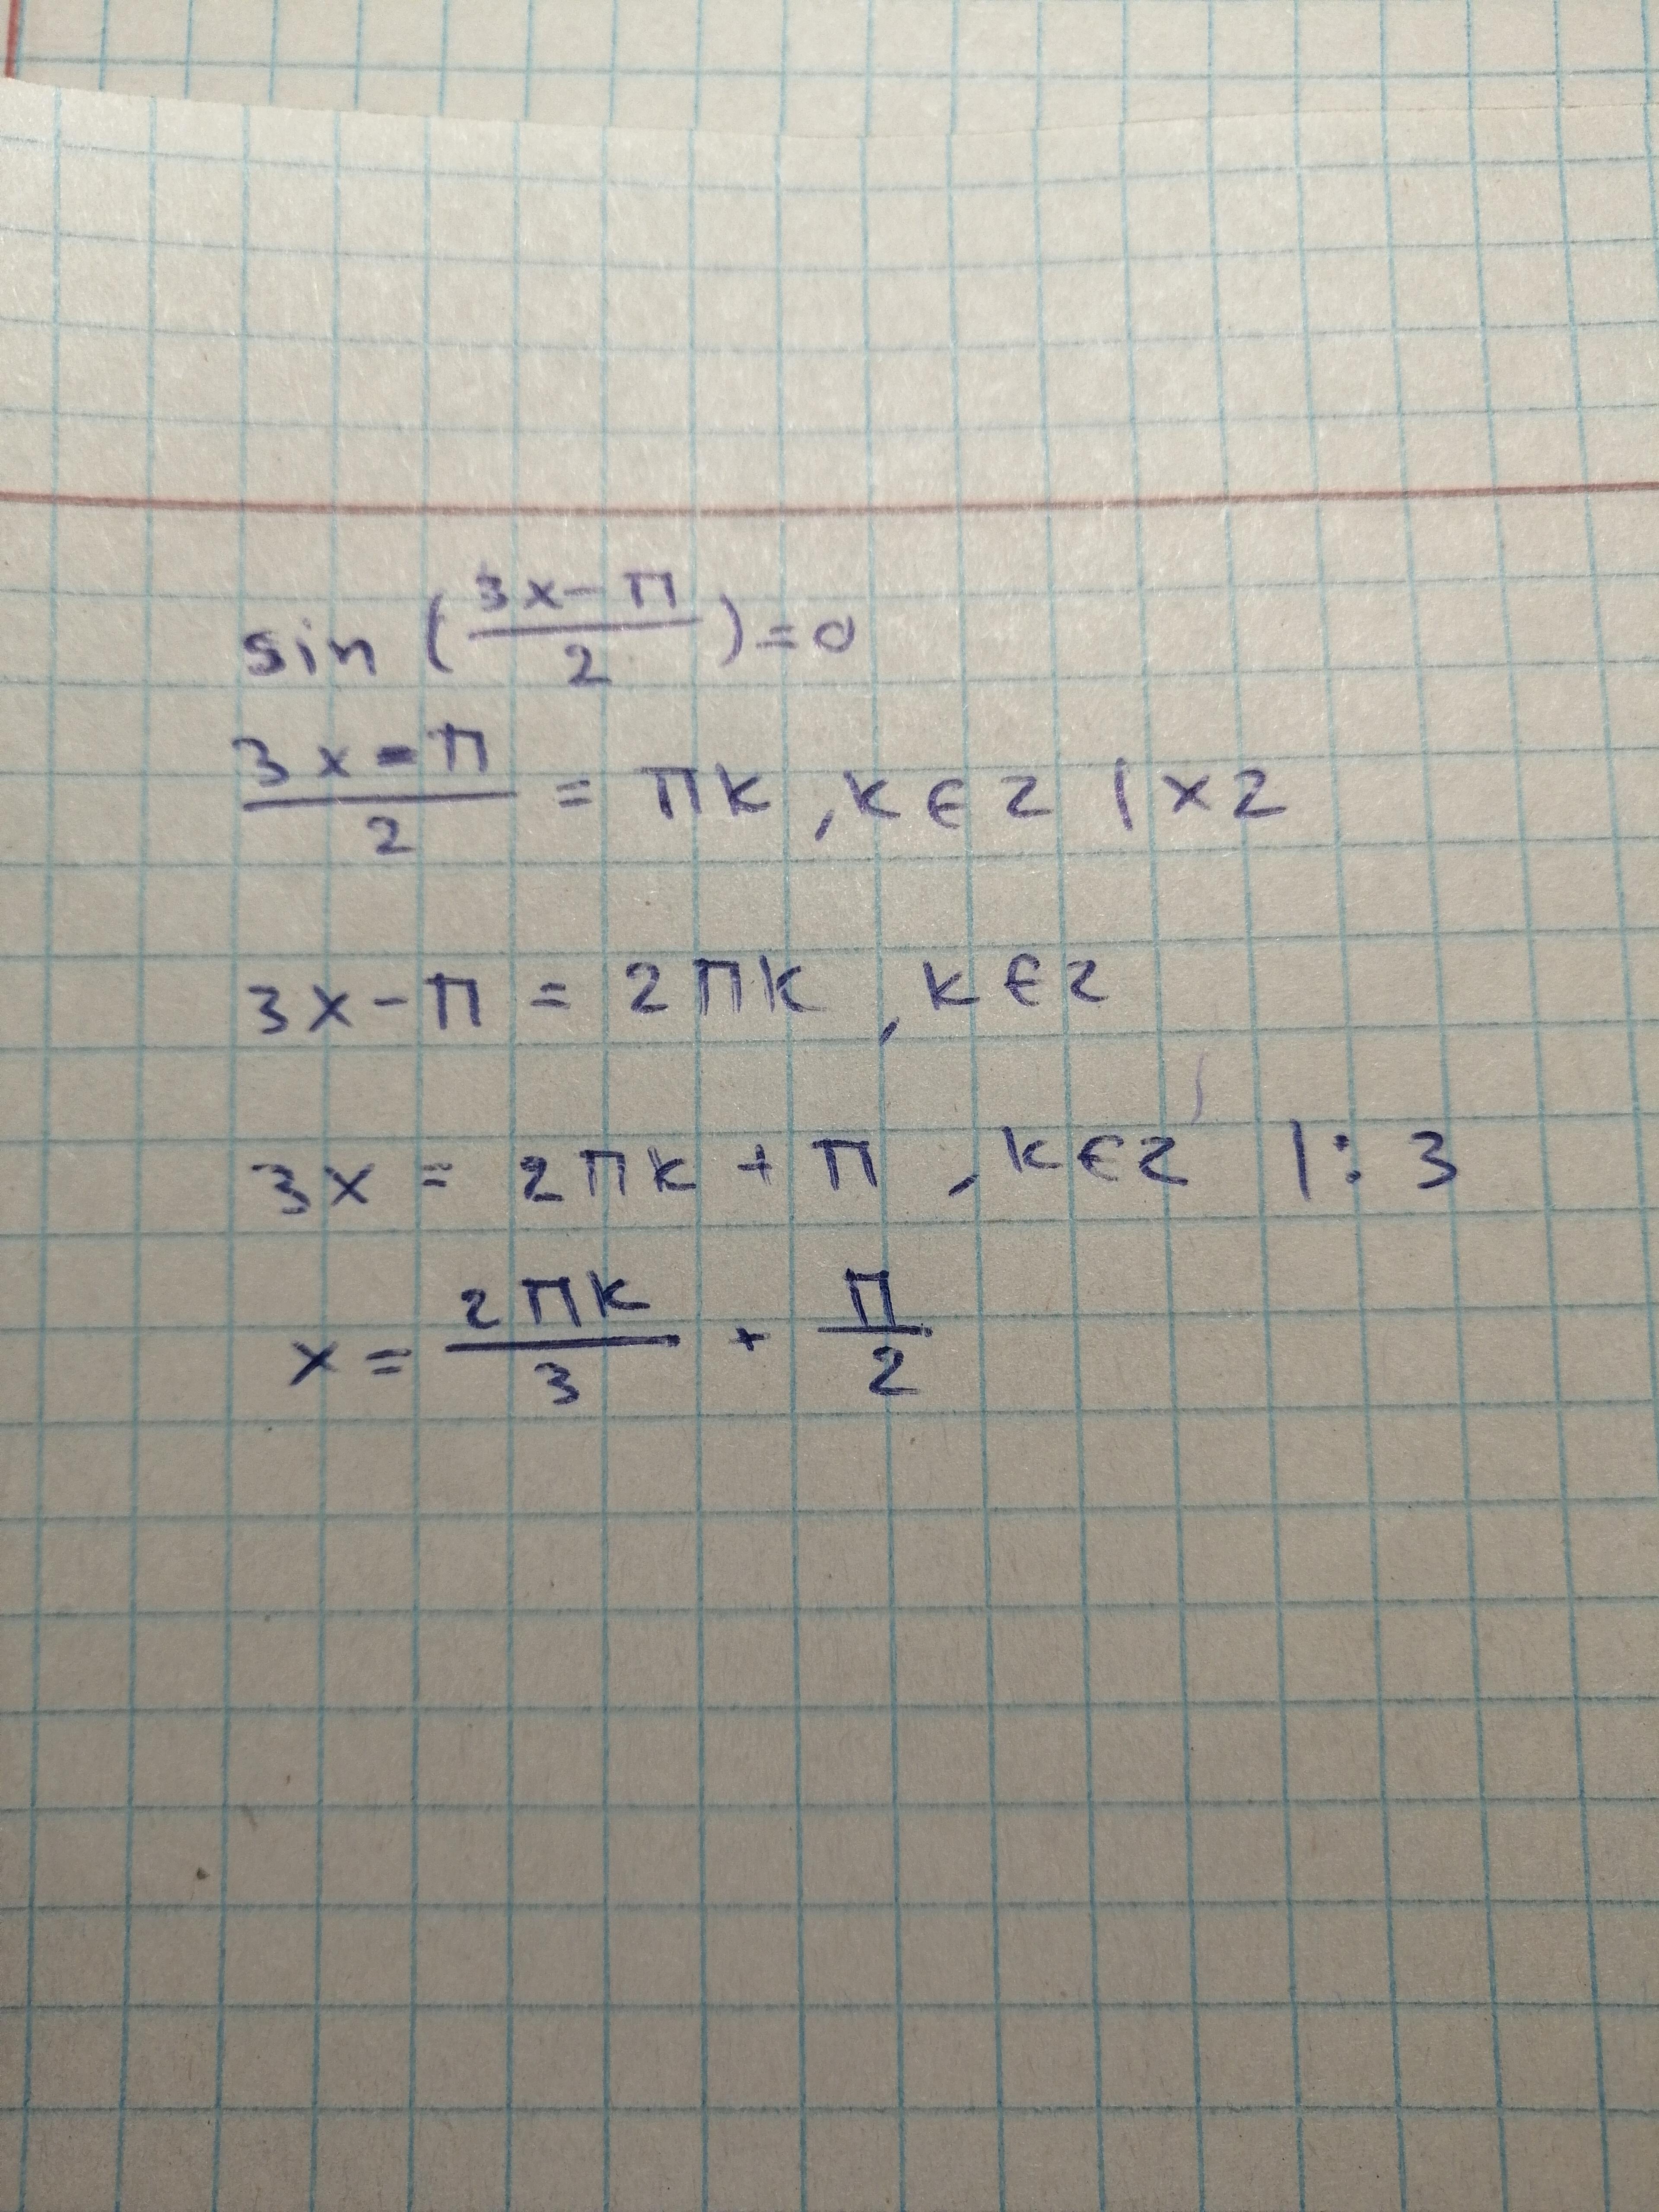 sin (3x-π/2)=0
3x-π/2 = πk, k∈z | x 2
3x-π = 2πk, k∈z
3x = 2πk + π, k∈z |: 3
x = 2πk/3 + π/2